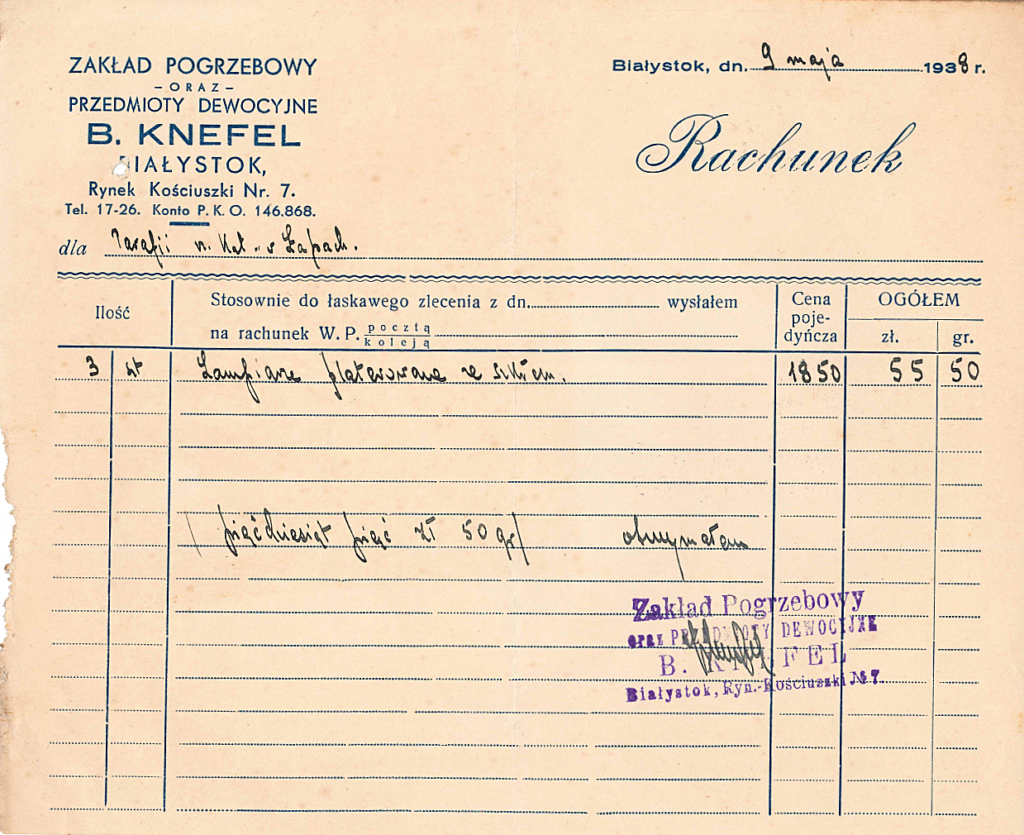 ZAKŁAD POGRZEBOWY
- ORAZ -
PRZEDMIOTY DEWOCYJNE
B. KNEFEL
BIAŁYSTOK,
Rynek Kościuszki Nr. 7.
Tel. 17-26. Konto P. K. O. 146.868.
Białystok, dn. 9 maja 1938 r.
Rachunek
dla Parafii rz. Kat. w Łapach.
Ilość
Stosownie do łaskawego zlecenia z dn. wysłałem
na rachunek W. P. pocztą koleją
Cena poje-dyńcza
OGÓŁEM
zł. gr.
3 szt Lampiarze platerowane ze szkłem. 18 50 55 50
/ pięćdziesiąt pięć zł 50 gr/ otrzymałem
Zakład Pogrzebowy
oraz PRZEDMIOTY DEWOCYJNE
B. KNEFEL
Białystok, Ryn.-Kościuszki № 7.